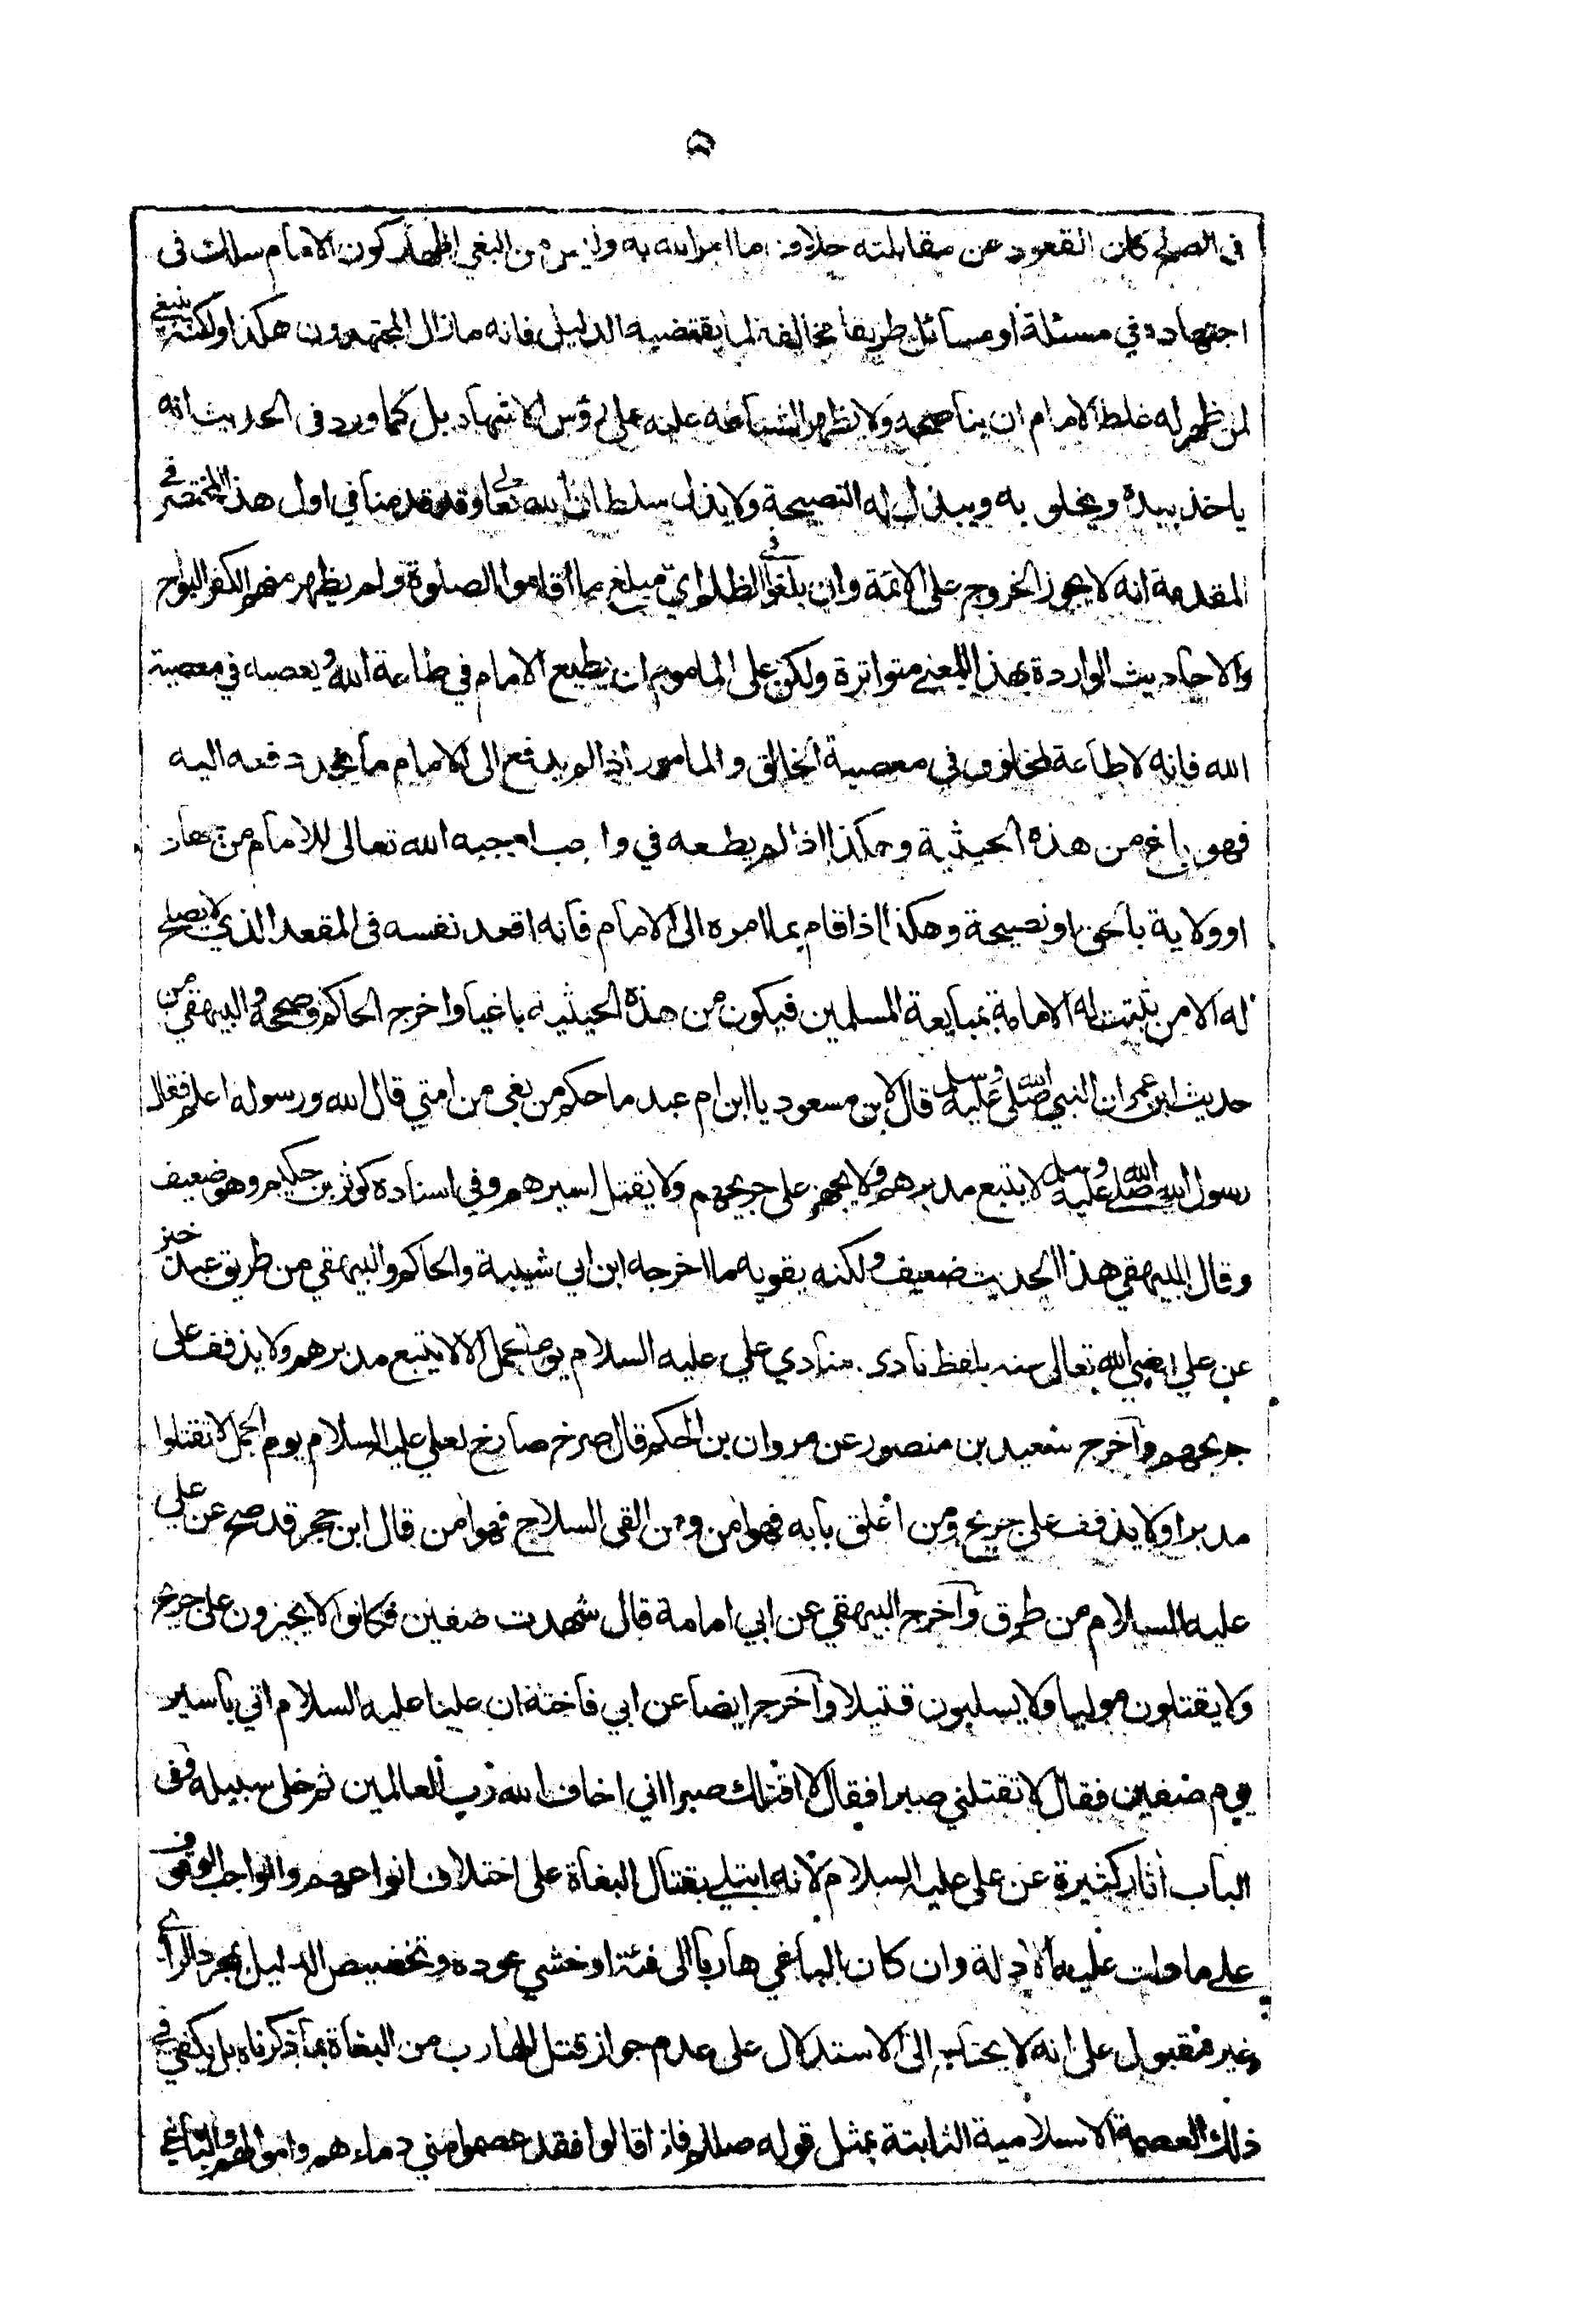 ۵
في الصلح كان القعود عن مقابلته خلاف ما امر الله به وليس من البغي اظهار كون الامام سلك في
اجتهاده في مسئلة او مسائل طريقا مخالفة لما يقتضيه الدليل فانه ما زال المجتهدون هكذا ولكنه ينبغي
لمن ظهر له غلط الامام ان يناصحه ولا يظهر الشناعة عليه على رؤس الاشهاد بل كما ورد في الحديث انه
ياخذ بيده ويخلو به ويبذل له النصيحة ولا يذل سلطان الله تعالى وقد قدمنا في اول هذا المختصر في
المقدمة انه لا يجوز الخروج على الائمة وان بلغوا في الظلم اي مبلغ ما اقاموا الصلوة ولم يظهر منهم الكفر البواح
والاحاديث الواردة بهذا المعنى متواترة ولكن على الماموم ان يطيع الامام في طاعة الله ويعصيه في معصية
الله فانه لا طاعة لمخلوق في معصية الخالق والمامور اذا لم يدفع الى الامام ما يجب دفعه اليه
فهو باغ من هذه الحيثية وهكذا اذا لم يطعه في واجب اوجبه الله تعالى للامام من جهاد
او ولاية باحق او نصيحة وهكذا اذا قام بما امره الى الامام فانه اقعد نفسه في المقعد الذي لا يصلح
له الا من ثبتت له الامامة بمبايعة المسلمين فيكون من هذه الحيثية باغيا واخرج الحاكم وصححه والبيهقي من
حديث ابن عمر ان النبي صلى الله عليه وسلم قال لابن مسعود يا ابن ام عبد ما حكم من بغى من امتي قال الله ورسوله اعلم فقال
رسول الله صلى الله عليه وسلم لا يتبع مدبرهم ولا يجهز على جريحهم ولا يقتل اسيرهم وفي اسناده كوثر بن حكيم وهو ضعيف
وقال البيهقي هذا الحديث ضعيف ولكنه يقويه ما اخرجه ابن ابي شيبة والحاكم والبيهقي من طريق عبد خير
عن علي رضي الله تعالى عنه بلفظ نادى منادي علي عليه السلام يوم الجمل الا لا يتبع مدبرهم ولا يذفف على
جريحهم واخرج سعيد بن منصور عن مروان بن الحكم قال صرخ صارخ لعلي عليه السلام يوم الجمل لا تقتلوا
مدبرا ولا يذفف على جريح ومن اغلق بابه فهو امن ومن القى السلاح فهو امن قال ابن حجر قد صح عن علي
عليه السلام من طرق واخرج البيهقي عن ابي امامة قال شهدت صفين فكانوا لا يجيزون على جريح
ولا يقتلون موليا ولا يسلبون قتيلا واخرج ايضا عن ابي فاختة ان عليا عليه السلام اتي باسير
يوم صفين فقال لا تقتلني صبرا فقال لا اقتلك صبرا اني اخاف الله رب العالمين ثم خلى سبيله وفي
الباب اثار كثيرة عن علي عليه السلام لانه ابتلي بقتال البغاة على اختلاف انواعهم والواجب الوقوف
على ما دلت عليه الادلة وان كان الباغي هاربا الى فئة او خشي عوده وتخصيص الدليل بمجرد الراي
غير مقبول على انه لا يحتاج الى الاستدلال على عدم جواز قتل الهارب من البغاة بما ذكرناه بل يكفي في
ذلك العصمة الاسلامية الثابتة بمثل قوله صللم فاذا قالوا فقد عصموا مني دماءهم واموالهم والباغي